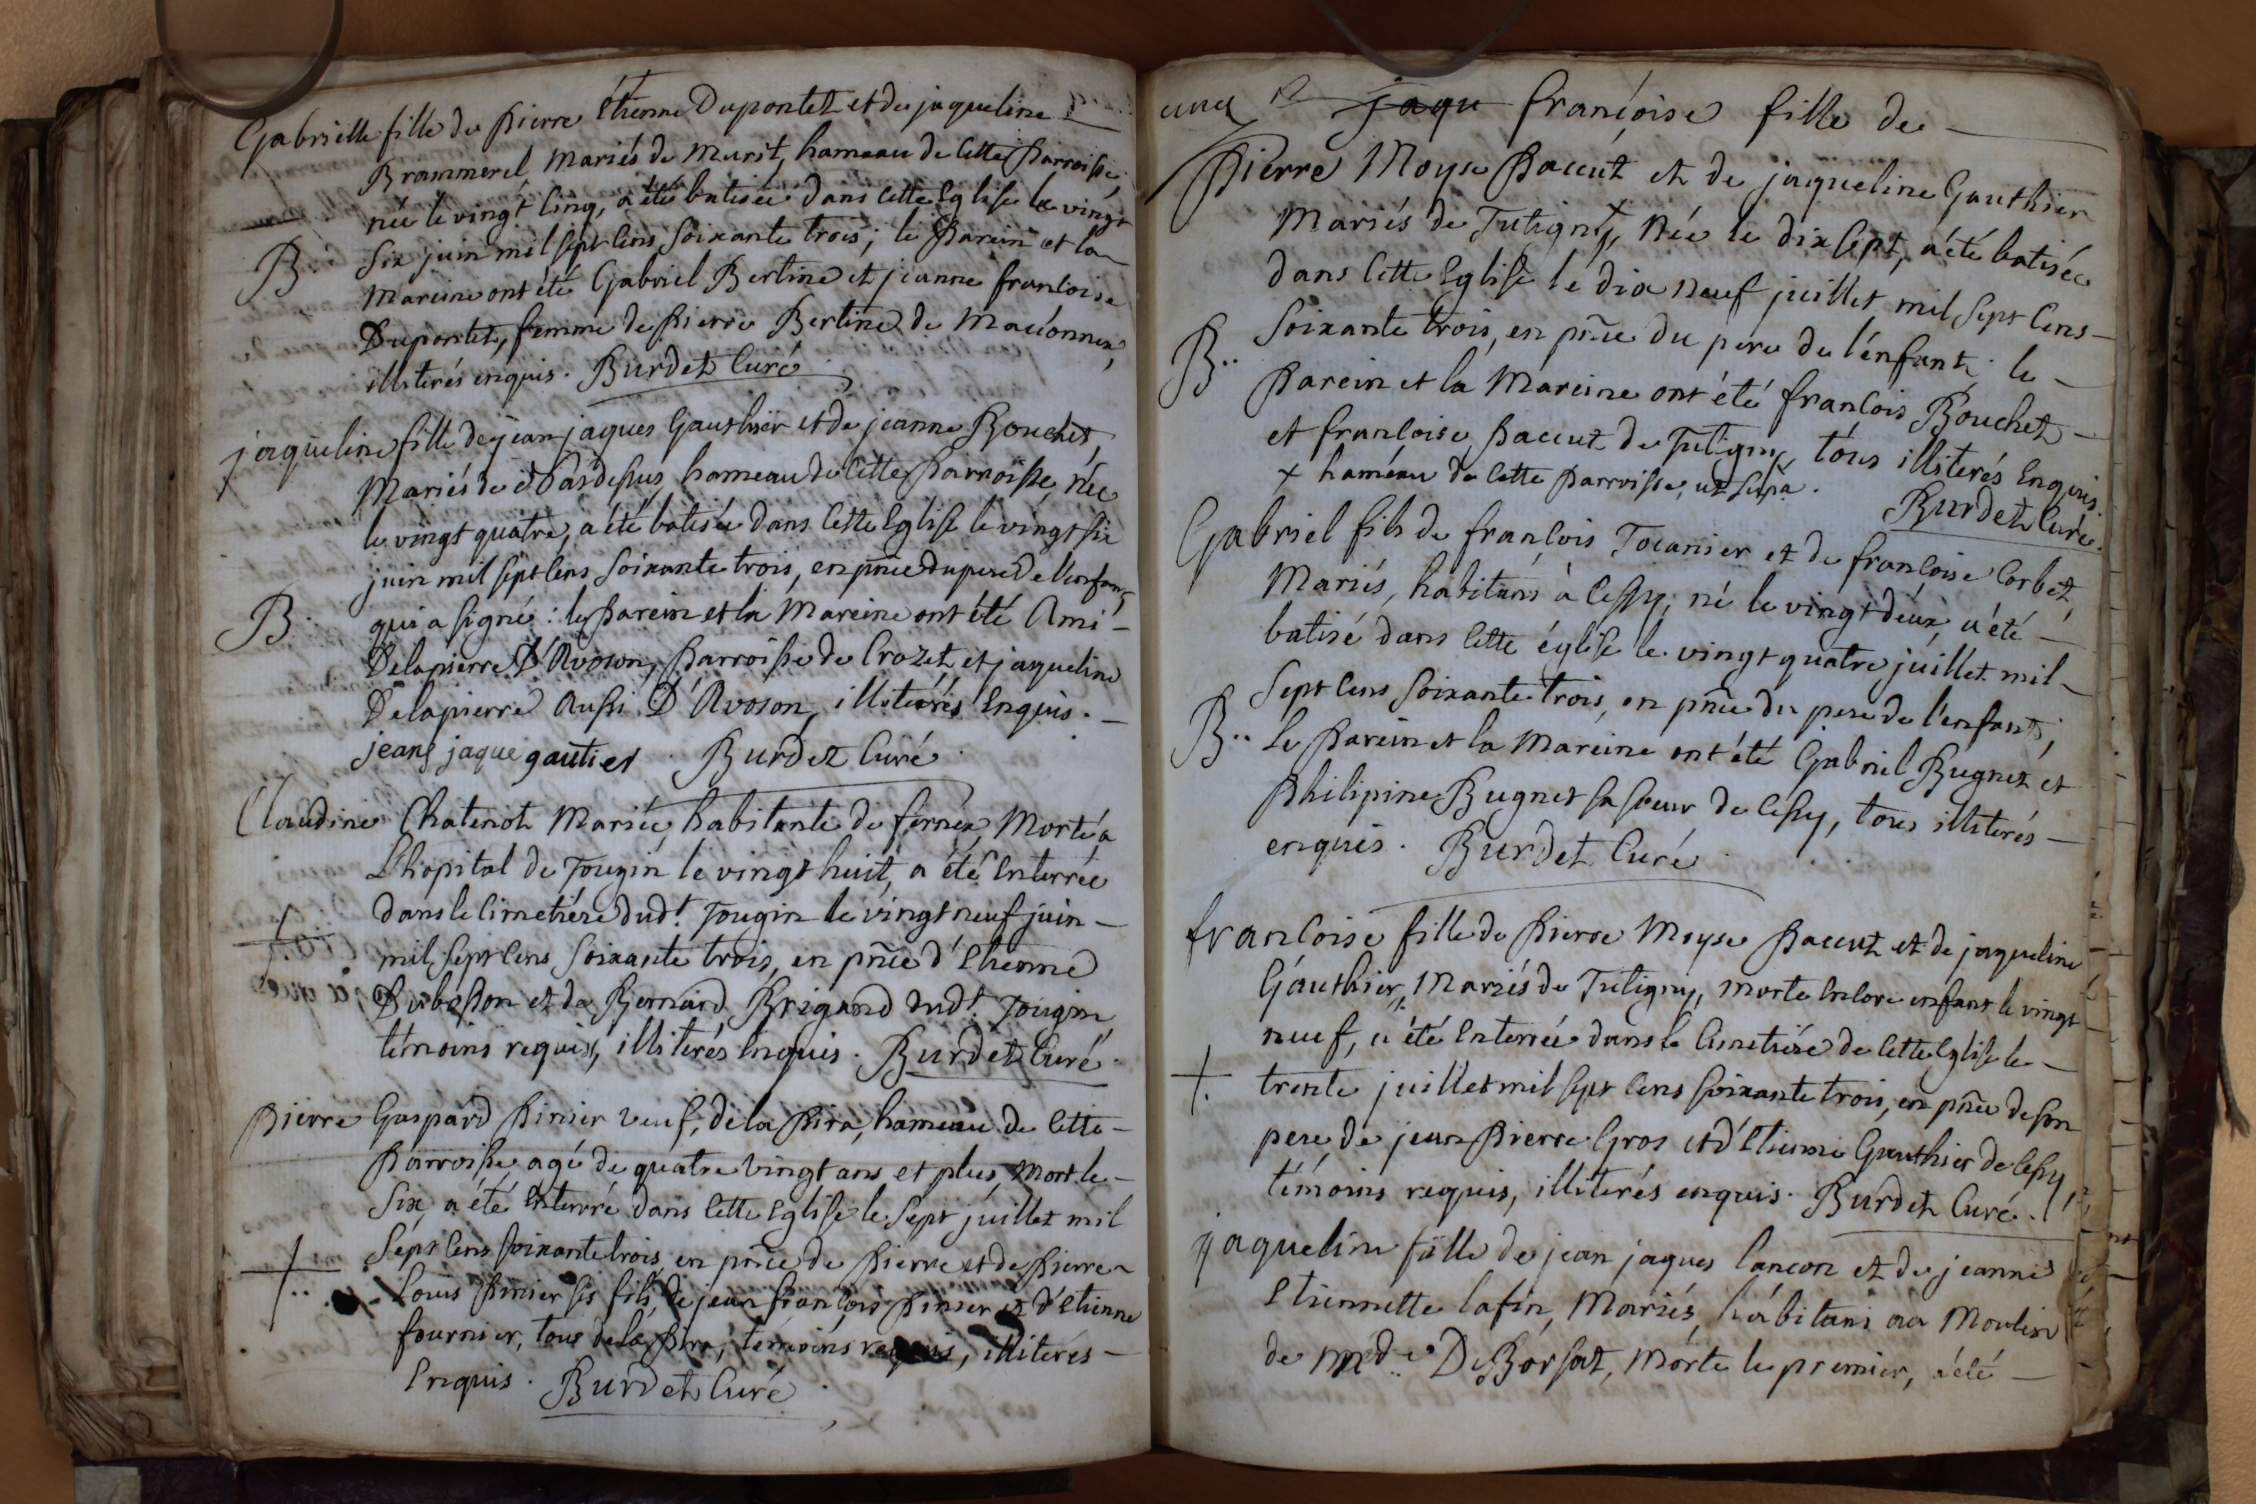 Gabrielle fille de Pierre Etienne Dupontet et de jaqueline
Brammerel Mariés de Murit, hameau de cette Parroisse,
née le vingt cinq, a été batisée dans cette Eglise le vingt
six juin mil sept cens soixante trois; le Parein et la
B.
Mareine ont été Gabriel Bertine et jeanne francoise
Dupontet, femme de Pierre Bertine de Maconnex,
illiterés enquis. Burdet Curé
jaqueline fille de jean jaques Gauthier et de jeanne Bouchet,
Mariés de Pardessus hameau de cette Parroisse, née
le vingt quatre, a été batisée dans cette Eglise le vingt six
juin mil sept cens soixante trois, en pñce du pere de l'enfant
B.
qui a signé: le Parein et la Mareine ont été Ami
Delapierre D'Avoson, Parroisse de Crozet et jaqueline
Delapierre Aussi D'Avoson, illiterés Enquis.
jean jaque gautier. Burdet Curé
Claudine Chatenot Mariée, habitante de fernex, Morte a
L'hopital de Tougin le vingt huit, a été Enterrée
dans le Cimetiére dud.t Tougin le vingt neuf juin
mil sept cens soixante trois, en pñce d'Etienne
Dubosson et de Bernard Brigand dud.t Tougin
témoins requis, illiterés Enquis. Burdet Curé
Pierre Gaspard Pinier veuf, de la Pira, hameau de cette
Parroisse agé de quatre vingt ans et plus, Mort le
six, a été Enterré dans cette Eglise le sept juillet mil
sept cens soixante trois, en pñce de Pierre et de Pierre
Louis Pinier ses fils, de jean françois Pinier et d'Etienne
fournier, tous de la Pira, témoins requis, illiterés
Enquis. Burdet Curé
jaqu françoise fille de
Pierre Moyse Paccut et de jaqueline Gauthier
Mariés de Tutigny, x Née le dix sept, a été batisée
dans cette Eglise le dix neuf juillet mil sept cens
soixante trois, en pñce du pere de l'énfant; le
B.
Parein et la Mareine ont été francois Bouchet
et francoise Paccut de Tutigny, tous illiterés Enquis.
x haméau de cette Parroisse, ut supra. Burdet Curé.
Gabriel fils de francois Tocanier et de francoise Corbet,
Mariés, habitans à Cessy, né le vingt déux, a été
batisé dans cette église le vingt quatre juillet mil
sept cens soixante trois, en pñce du pere de l'enfant;
B.
Le Parein et la Mareine ont été Gabriel Bugnet et
Philipine Bugnet sa soeur de Cessy, tous illiterés
enquis. Burdet Curé
francoise fille de Pierre Moyse Paccut et de jaqueline
Gauthier, Mariés de Tutigny, morte encore enfant le vingt
neuf, a été Enterrée dans le Cimetiére de cette Eglise le
trente juillet mil sept cens soixante trois, en pñce de son
pere, de jean Pierre Gros et d'Etienne Gauthier de Cessy,
témoins requis, illiterés enquis. Burdet Curé.
jaqueline fille de jean jaques Lancon et de jeanne
Etiennette Lafin, Mariés, habitans au Moulin
de Md.e De Borsat, Morte le premier, a été